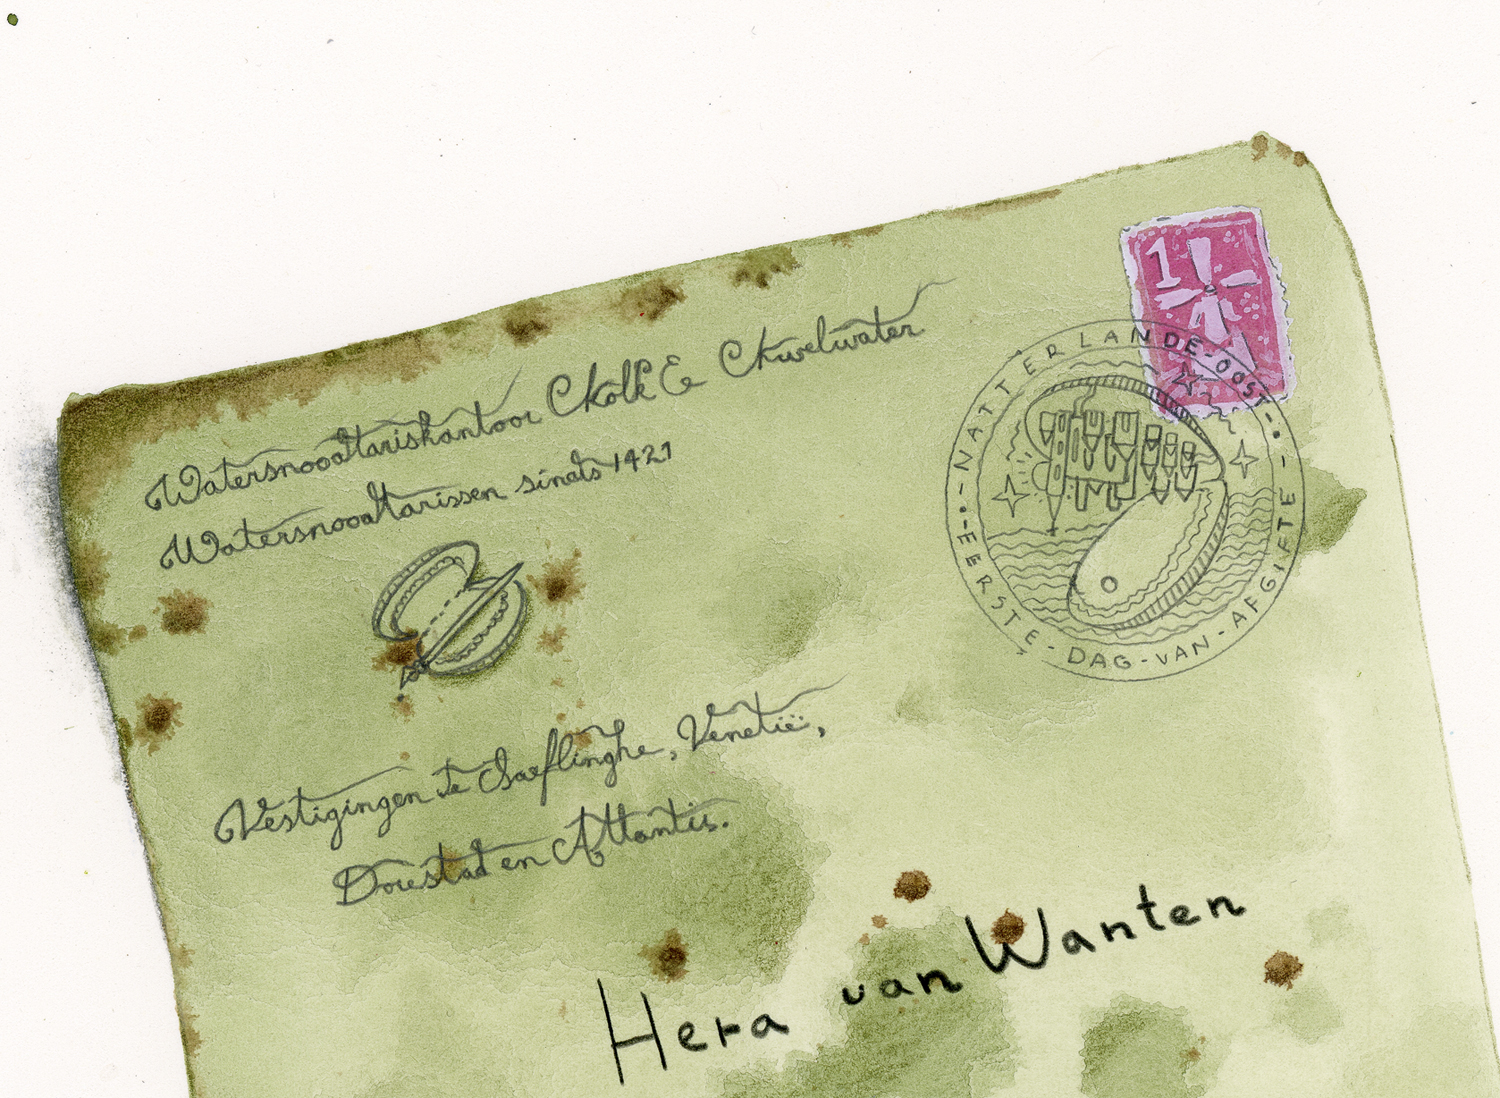 Watersnooattariskantoor Kolk & Kwelwater
Watersnooattarissen sinds 1421
Vestigingen te Saeflinghe, Venetië,
Dorestad en Atlantis.
1
NATTERLANDE-OOST
EERSTE-DAG-VAN-AFGIFTE
Hera van Wanten